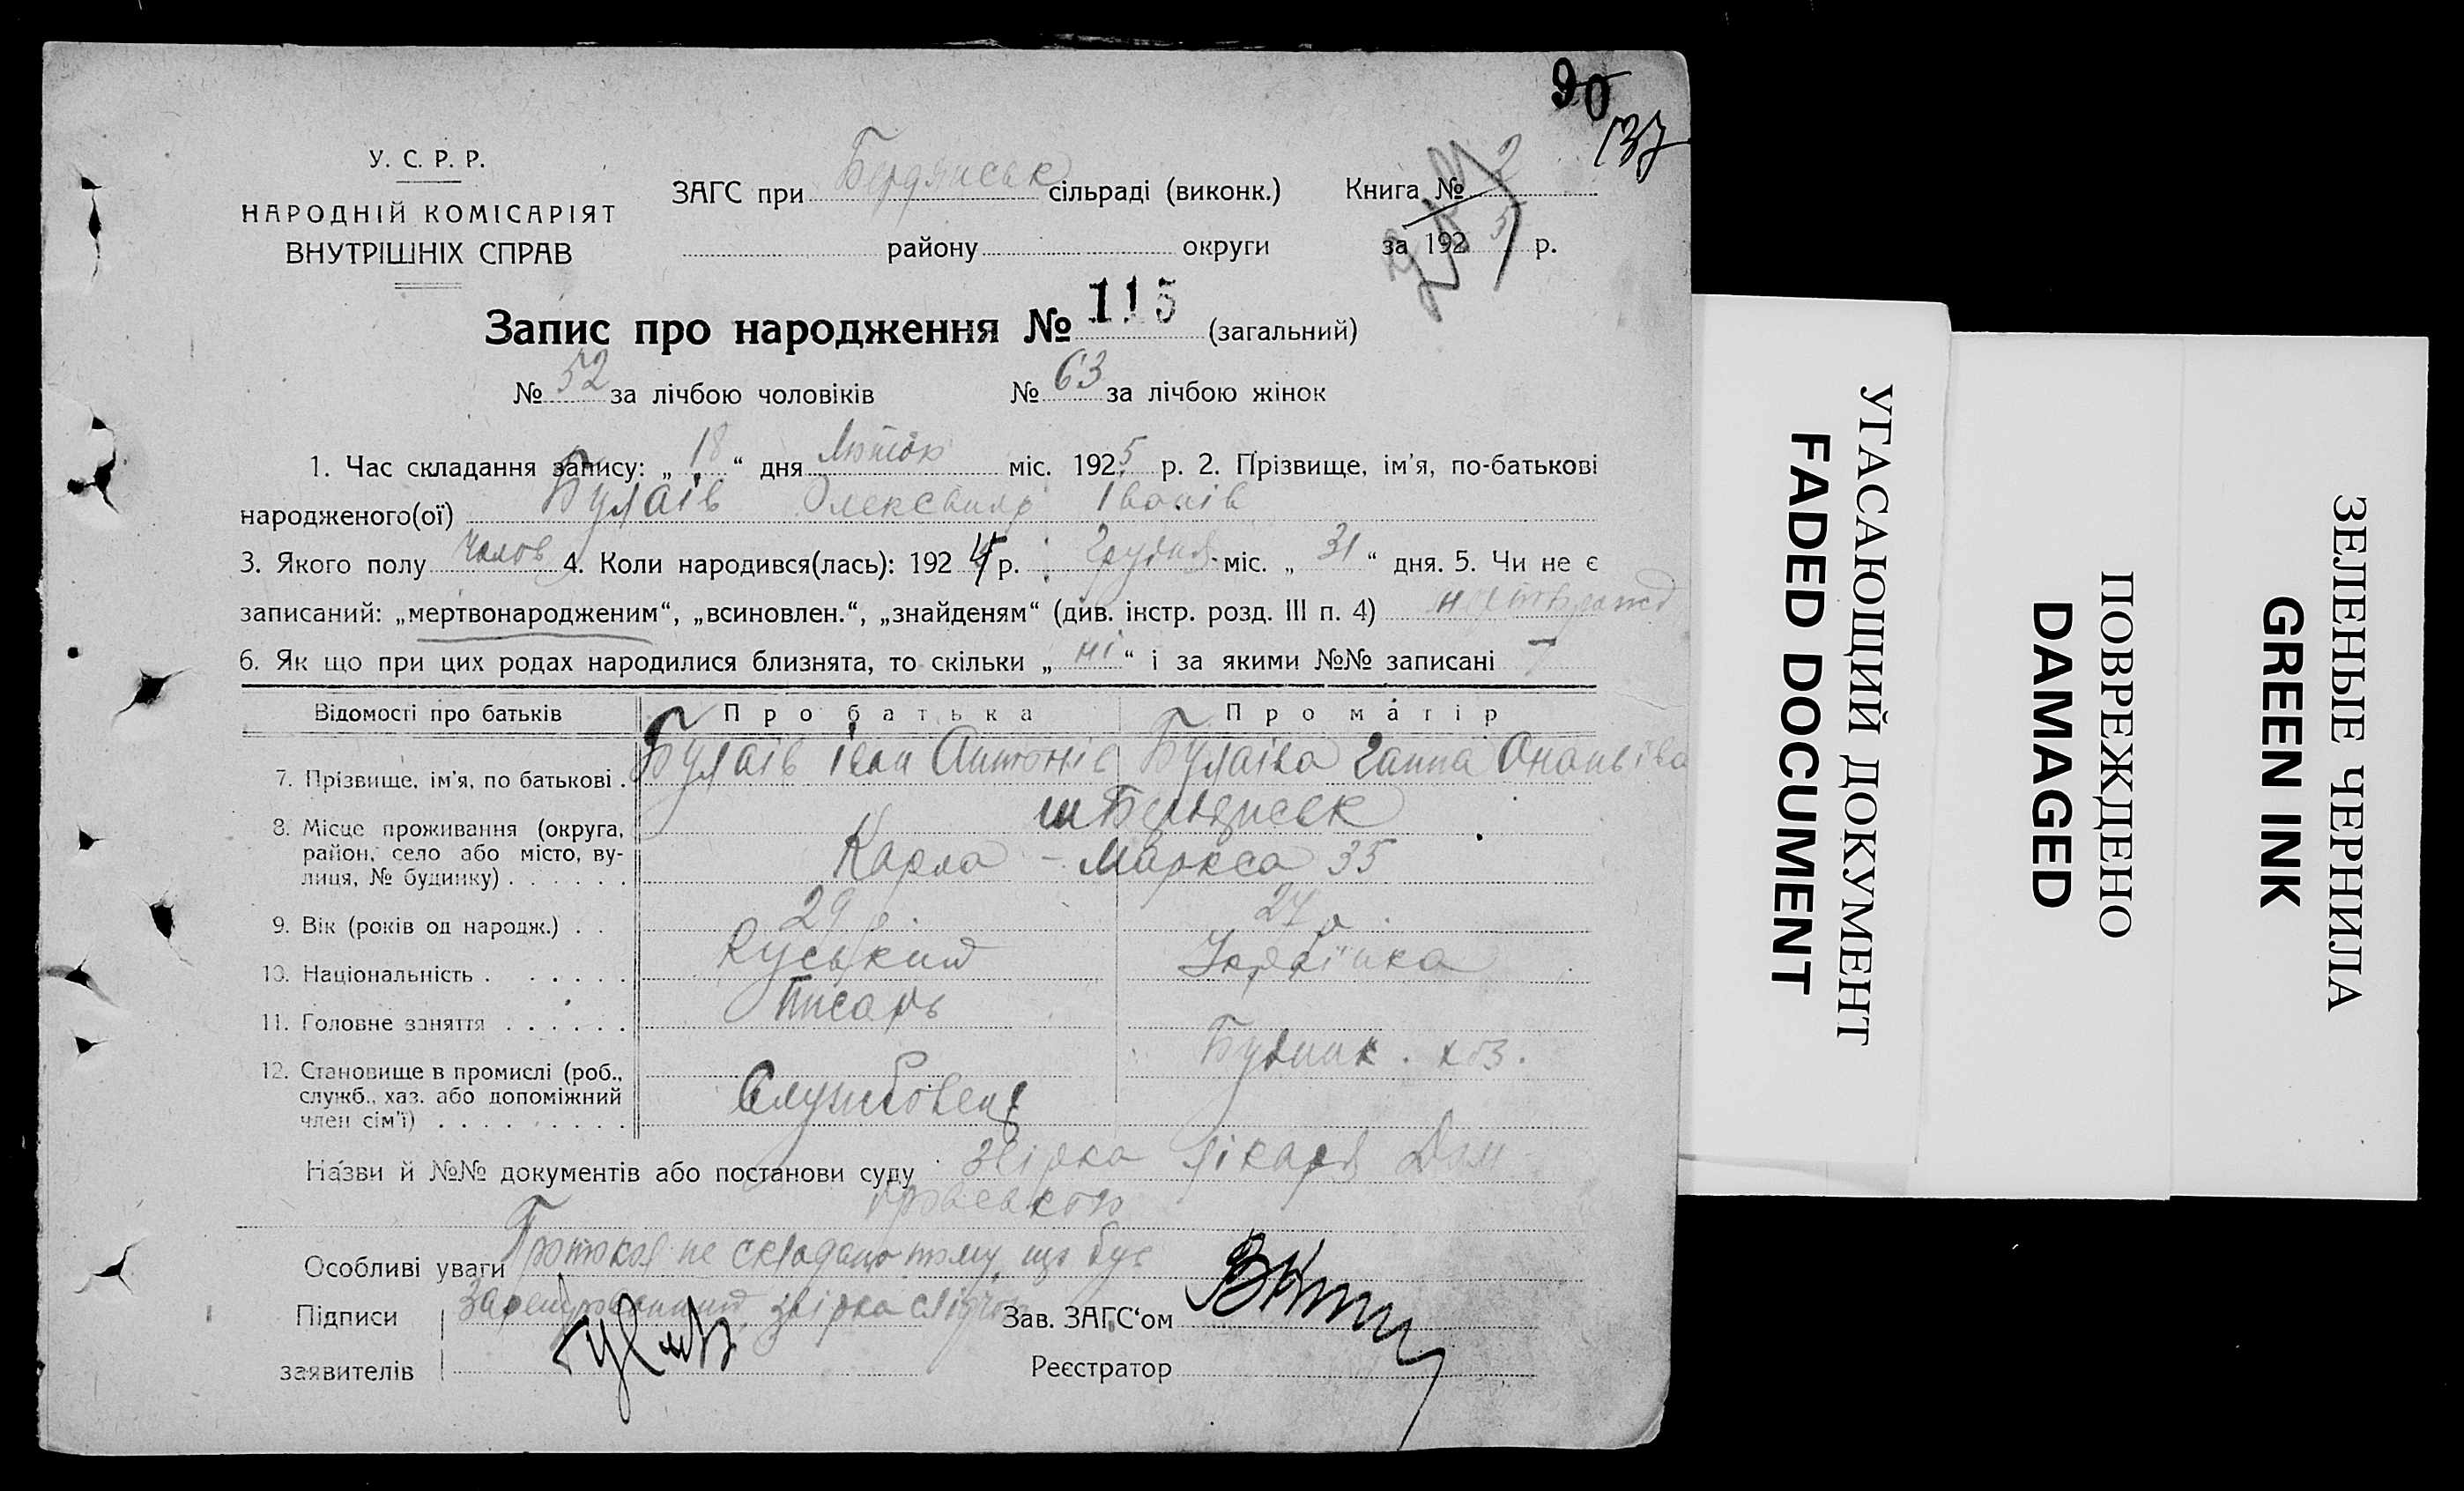 90
137
У. С. Р. Р.
НАРОДНІЙ КОМІСАРІЯТ
ВНУТРІШНІХ СПРАВ
ЗАГС при Бердянськ сільраді (виконк.) Книга № 2
району округи за 1925 р.
Запис про народження № 115 (загальний)
№ 52 за лічбою чоловіків № 63 за лічбою жінок
1. Час складання запису: „ 18 “ дня Лютого міс. 1925 р. 2. Прізвище, ім'я, по-батькові
народженого(ої) Булаів Олександр Іванів
3. Якого полу чолов 4. Коли народився(лась): 1924 р. Грудня міс. „ 31 “ дня. 5. Чи не є
записаний: „мертвонародженим“, „всиновлен.“, „знайденям“ (див. інстр. розд. III п. 4)
6. Як що при цих родах народилися близнята, то скільки „ ні “ і за якими №№ записані —
Відомості про батьків Про батька Про матір
7. Прізвище, ім'я, по батькові . Булаів Іван Антонів Булаіва Ганна Ананьівна
8. Місце проживання (округа, м Бердянськ
район, село або місто, ву-
лиця, № будинку) . . . . . . Карла - Маркса 35
9. Вік (років од народж.) . . 29 р. 24 р.
10. Національність . . . . . . Руський Українка
11. Головне заняття . . . . . . Писарь
Будинк. хоз.
12. Становище в промислі (роб.,
служб., хаз. або допоміжний Службовець
член сім'ї) . . . . . . . . .
Назви й №№ документів або постанови суду звірка лікаря Дом
Особливі уваги Протокол не складано тому, що був
Підписи звірка Зав. ЗАГС'ом
заявителів Реєстратор
УГАСАЮЩИЙ ДОКУМЕНТ
FADED DOCUMENT
ПОВРЕЖДЕНО
DAMAGED
ЗЕЛЕНЫЕ ЧЕРНИЛА
GREEN INK